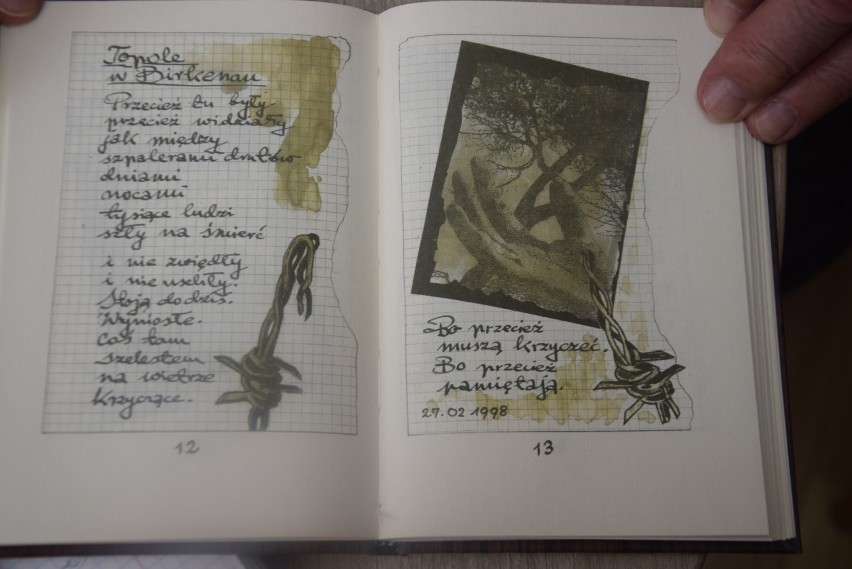 Topole
w Birkenau
Przecież tu były
przecież widziały
jak między
szpalerami drutów
dniami
nocami
tysiące ludzi
szły na śmierć
i nie zwiędły
i nie uschły.
Stoją do dziś.
Wyniosłe.
Coś tam
szelestem
na wietrze
krzycząc.
12
Bo przecież
muszą krzyczeć.
Bo przecież
pamiętają.
27.02 1998
13